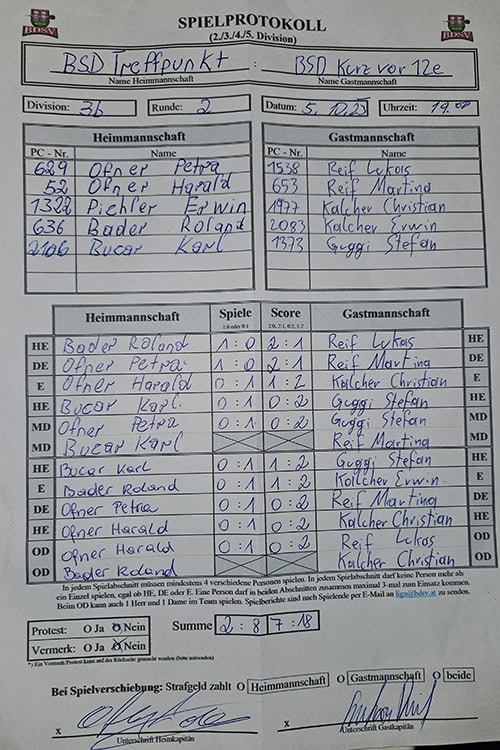 SPIELPROTOKOLL
(2./3./4./5. Division)
BDSV BDSV
BSD Treffpunkt : BSD Kurz vor 12e
Name Heimmannschaft Name Gastmannschaft
Division: 3b Runde: 2 Datum: 5.10.25 Uhrzeit: 19.00
Heimmannschaft Gastmannschaft
PC - Nr. Name PC - Nr. Name
629 Ofner Petra 1538 Reif Lukas
52 Ofner Harald 653 Reif Martina
1322 Pichler Erwin 1977 Kalcher Christian
636 Bader Roland 2083 Kalcher Erwin
2106 Bucar Karl 1373 Guggi Stefan
Heimmannschaft Spiele Score Gastmannschaft
1:0 oder 0:1 2:0, 2:1, 0:2, 1:2
HE Bader Roland 1 : 0 2 : 1 Reif Lukas HE
DE Ofner Petra 1 : 0 2 : 1 Reif Martina DE
E Ofner Harald 0 : 1 1 : 2 Kalcher Christian E
HE Bucar Karl. 0 : 1 0 : 2 Guggi Stefan HE
MD Ofner Petra 0 : 1 0 : 2 Guggi Stefan MD
MD Bucar Karl Reif Martina MD
HE Bucar Karl 0 : 1 1 : 2 Guggi Stefan HE
E Bader Roland 0 : 1 1 : 2 Kalcher Erwin E
DE Ofner Petra 0 : 1 0 : 2 Reif Martina DE
HE Ofner Harald 0 : 1 0 : 2 Kalcher Christian HE
OD Ofner Harald 0 : 1 0 : 2 Reif Lukas OD
OD Bader Roland Kalcher Christian OD
In jedem Spielabschnitt müssen mindestens 4 verschiedene Personen spielen. In jedem Spielabschnitt darf keine Person mehr als
ein Einzel spielen, egal ob HE, DE oder E. Eine Person darf in beiden Abschnitten zusammen maximal 3-mal zum Einsatz kommen.
Beim OD kann auch 1 Herr und 1 Dame im Team spielen. Spielberichte sind nach Spielende per E-Mail an liga@bdsv.at zu senden.
Protest: O Ja O Nein Summe 2 : 8 7 : 18
Vermerk: O Ja O Nein
*) Ein Vermerk/Protest kann auf der Rückseite gemacht werden (bitte ankreuzen)
Bei Spielverschiebung: Strafgeld zahlt O Heimmannschaft O Gastmannschaft O beide
x x
Unterschrift Heimkapitän Unterschrift Gastkapitän